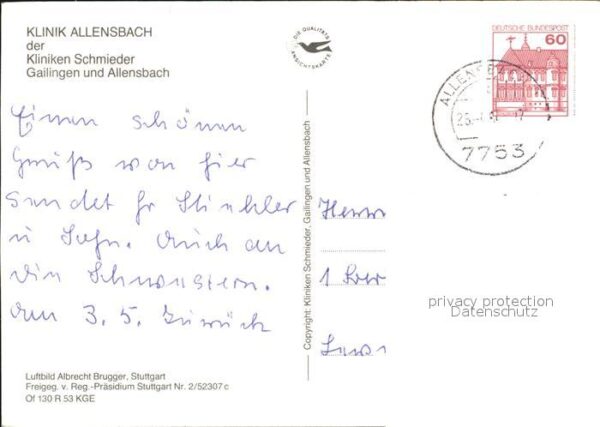 KLINIK ALLENSBACH
der
Kliniken Schmieder
Gailingen und Allensbach
DIE QUALITÄTS
ANSICHTSKARTE
DEUTSCHE BUNDESPOST
60
ALLENSB
7753
Einen schönen
Gruß von hier
sendet Fr
u Sohn. Auch an
die Schwestern.
am 3. 5. zurück
Copyright: Kliniken Schmieder, Gailingen und Allensbach
Herrn
1
privacy protection
Datenschutz
Luftbild Albrecht Brugger, Stuttgart
Freigeg. v. Reg.-Präsidium Stuttgart Nr. 2/52307 c
Of 130 R 53 KGE